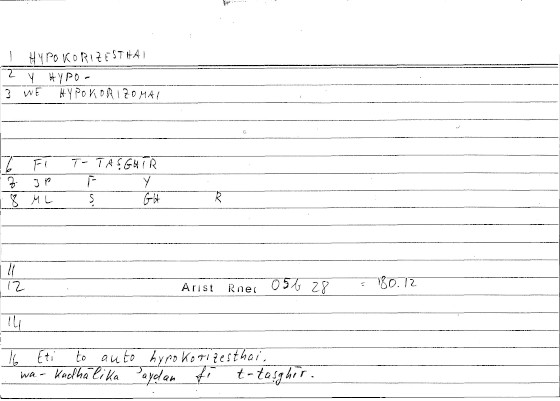 1 HYPOKORIZESTHAI
2 Y HYPO-
3 WE HYPOKORIZOMAI
6 FĪ T-TAṢGHĪR
7 JP F Y
8 ML Ṣ GH R
11
12 Arist Rhet 05b 28 = 180.12
14
16 Eti to auto hypokorizesthai.
wa-kadhālika 'aydan fī t-taṣghīr.